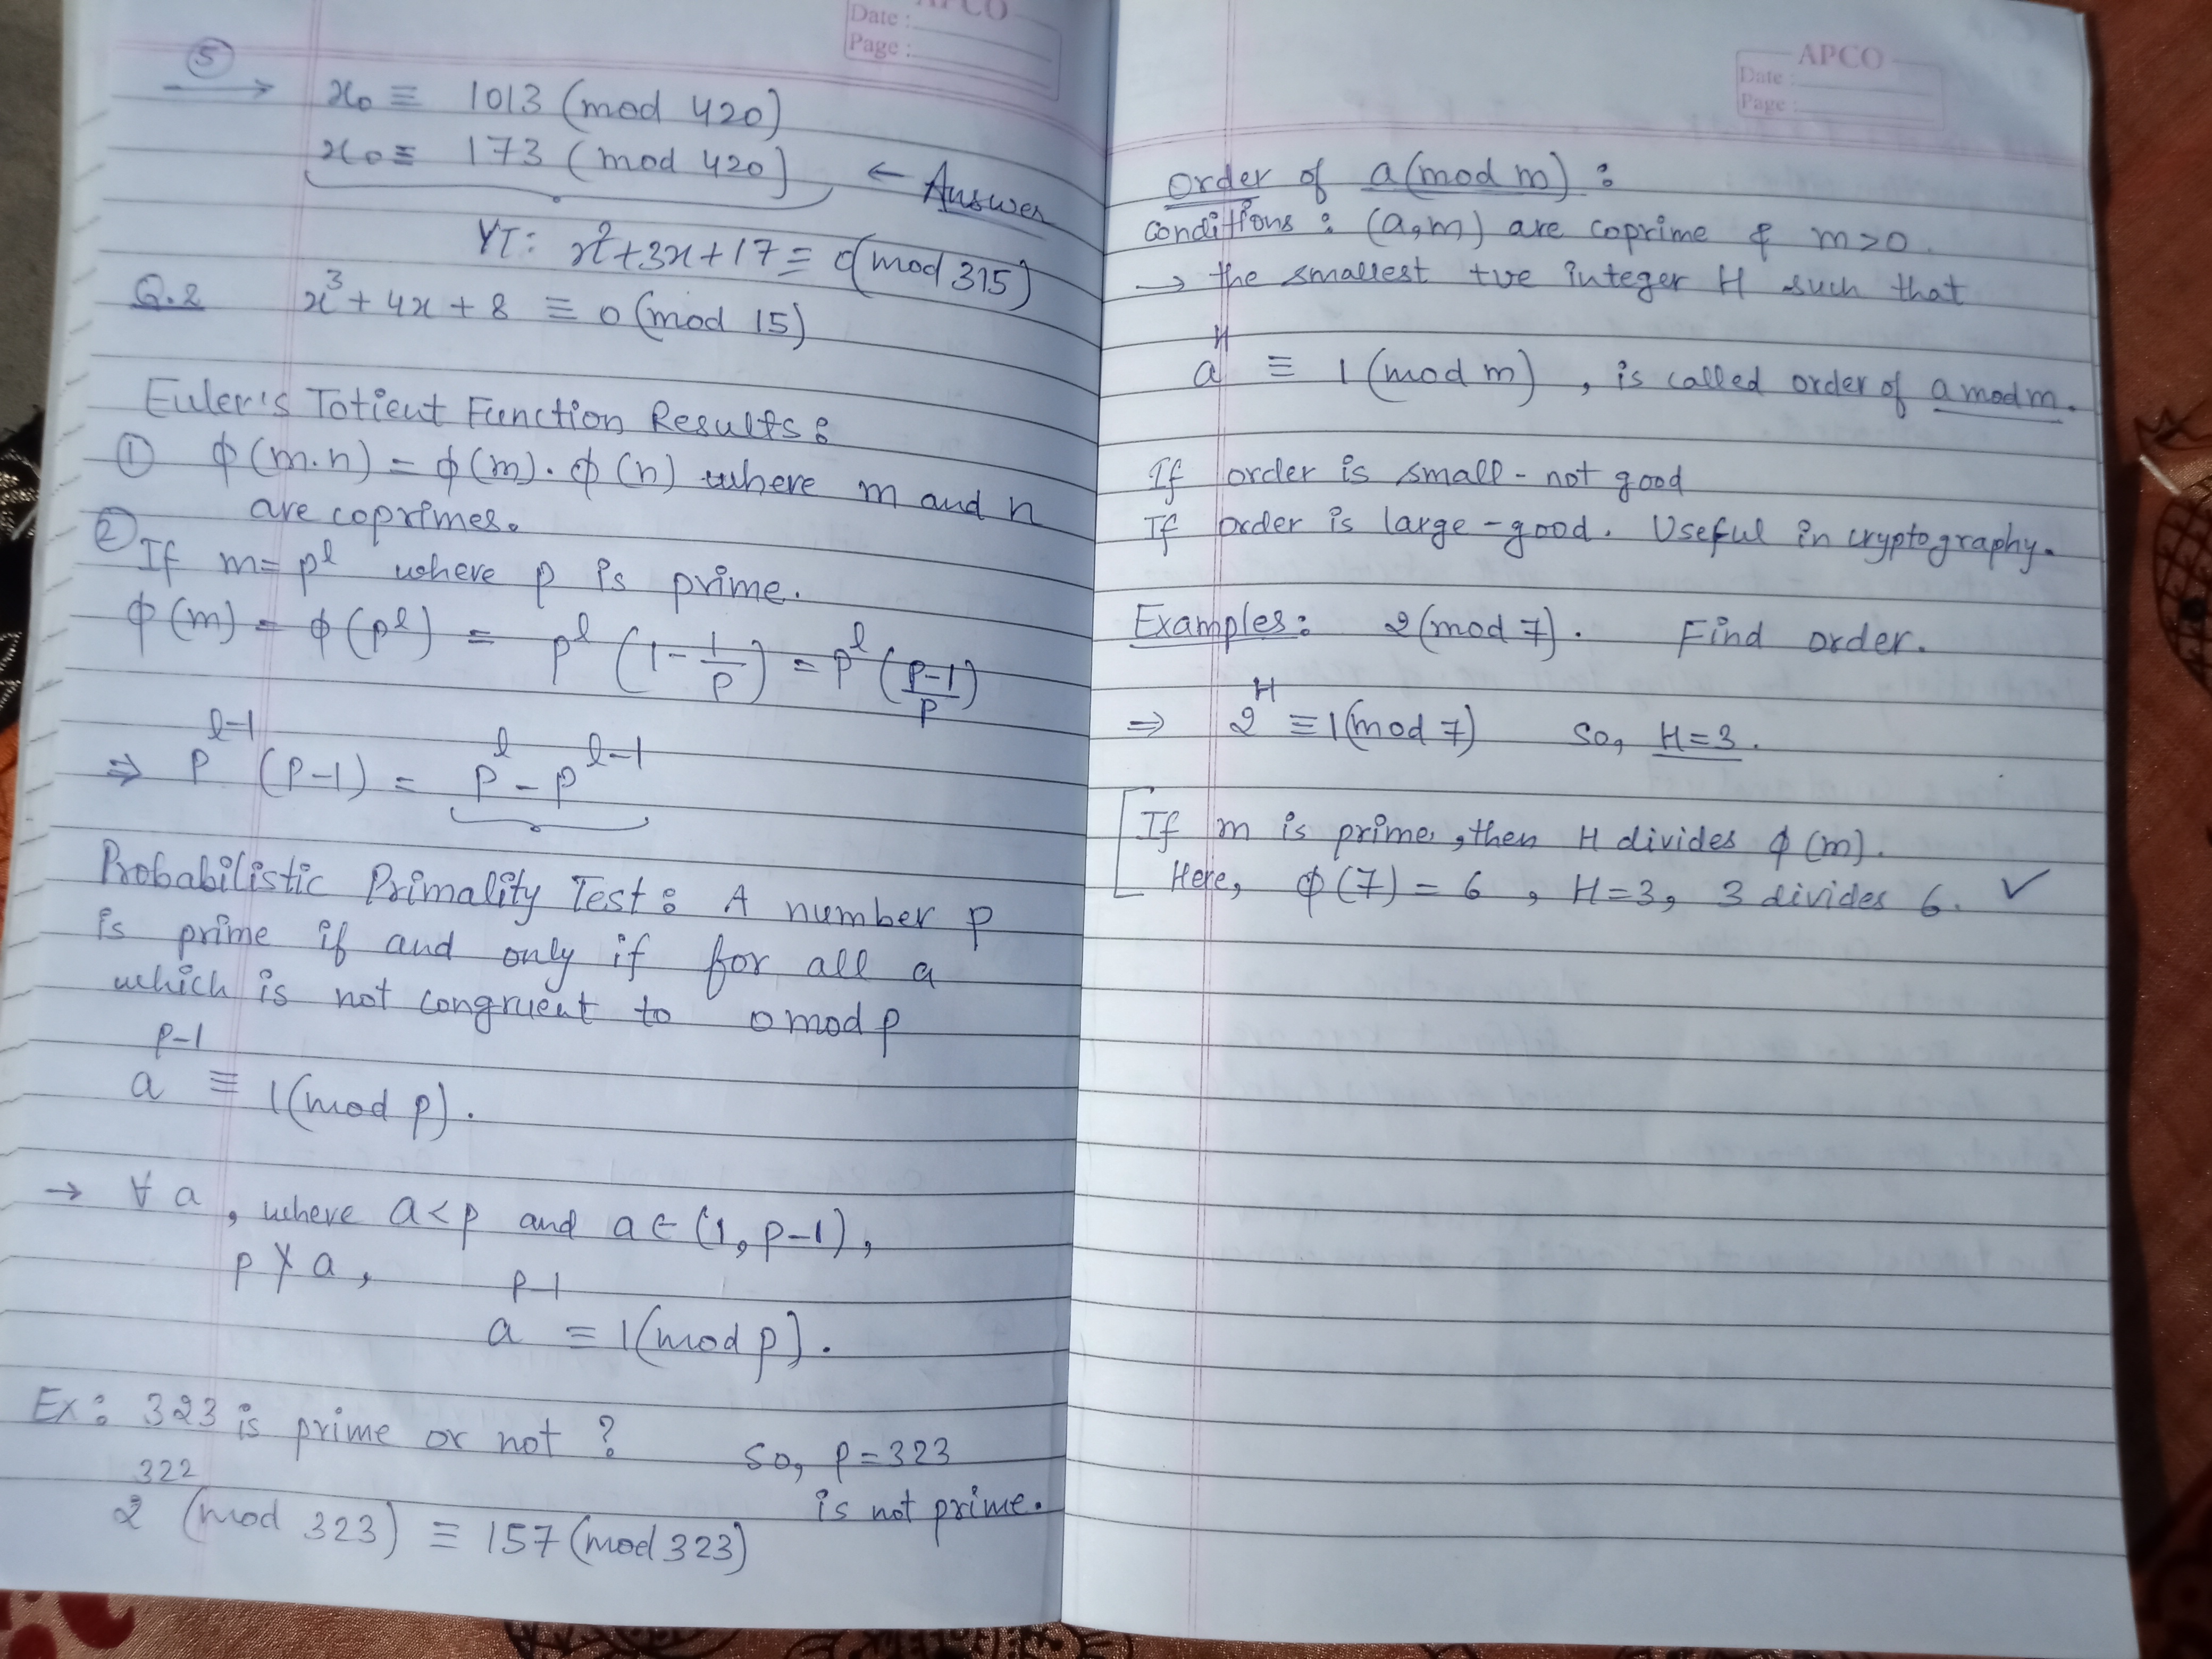 APCO
Date :
Page :
⑤ → x₀ ≡ 1013 (mod 420)
x₀ ≡ 173 (mod 420) ← Answer
YT: x²+3x+17 ≡ 0(mod 315)
Q.2 x³+4x+8 ≡ 0(mod 15)
Euler's Totient Function Results:
① ϕ(m.n) = ϕ(m).ϕ(n) where m and n
are coprimes.
② If m = pˡ where p is prime.
ϕ(m) = ϕ(pˡ) = pˡ(1 - 1/p) = pˡ(p-1/p)
⇒ pˡ⁻¹(p-1) = pˡ - pˡ⁻¹
Probabilistic Primality Test: A number p
is prime if and only if for all a
which is not congruent to 0 mod p
aᵖ⁻¹ ≡ 1(mod p).
→ ∀ a, where a<p and a∈(1, p-1),
p ∤ a,
aᵖ⁻¹ ≡ 1(mod p).
Ex: 323 is prime or not ?
2³²² (mod 323) ≡ 157(mod 323)
So, p = 323
is not prime.
APCO
Date :
Page :
Order of a(mod m) :
Conditions : (a,m) are coprime & m>0.
→ the smallest +ve integer H such that
aᴴ ≡ 1(mod m), is called order of a mod m.
If order is small - not good
If order is large - good. Useful in cryptography.
Examples: 2(mod 7). Find order.
⇒ 2ᴴ ≡ 1(mod 7) So, H=3.
If m is prime, then H divides ϕ(m).
Here, ϕ(7) = 6, H=3, 3 divides 6. ✓